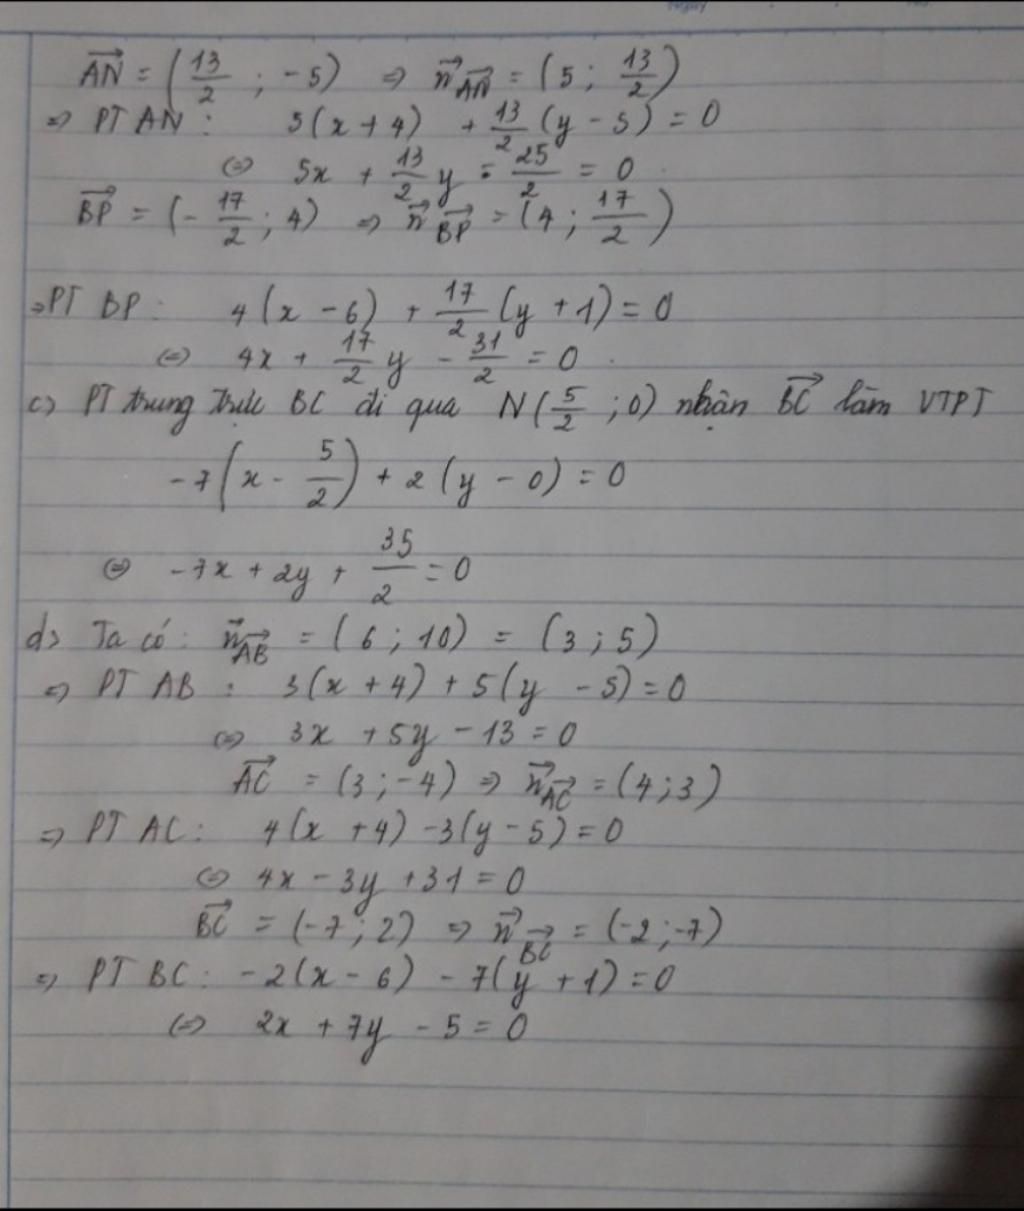 $\overrightarrow{AN} = (\frac{13}{2} ; -5) \Rightarrow \vec{n}_{\overrightarrow{AN}} = (5 ; \frac{13}{2})$
⇒ PT AN : 5(x + 4) + $\frac{13}{2}$(y - 5) = 0
⇔ 5x + $\frac{13}{2}$y - $\frac{25}{2}$ = 0
$\overrightarrow{BP} = (-\frac{17}{2} ; 4) \Rightarrow \vec{n}_{\overrightarrow{BP}} = (4 ; \frac{17}{2})$
⇒ PT BP : 4(x - 6) + $\frac{17}{2}$(y + 1) = 0
⇔ 4x + $\frac{17}{2}$y - $\frac{31}{2}$ = 0 .
c) PT trung trực BC đi qua N($\frac{5}{2}$ ; 0) nhận $\overrightarrow{BC}$ làm VTPT
-7(x - $\frac{5}{2}$) + 2(y - 0) = 0
⇔ -7x + 2y + $\frac{35}{2}$ = 0
d) Ta có : $\vec{n}_{\overrightarrow{AB}}$ = (6 ; 10) = (3 ; 5)
⇒ PT AB : 3(x + 4) + 5(y - 5) = 0
⇔ 3x + 5y - 13 = 0
$\overrightarrow{AC}$ = (3 ; -4) ⇒ $\vec{n}_{\overrightarrow{AC}}$ = (4 ; 3)
⇒ PT AC : 4(x + 4) - 3(y - 5) = 0
⇔ 4x - 3y + 31 = 0
$\overrightarrow{BC}$ = (-7 ; 2) ⇒ $\vec{n}_{\overrightarrow{BC}}$ = (-2 ; -7)
⇒ PT BC : -2(x - 6) - 7(y + 1) = 0
⇔ 2x + 7y - 5 = 0